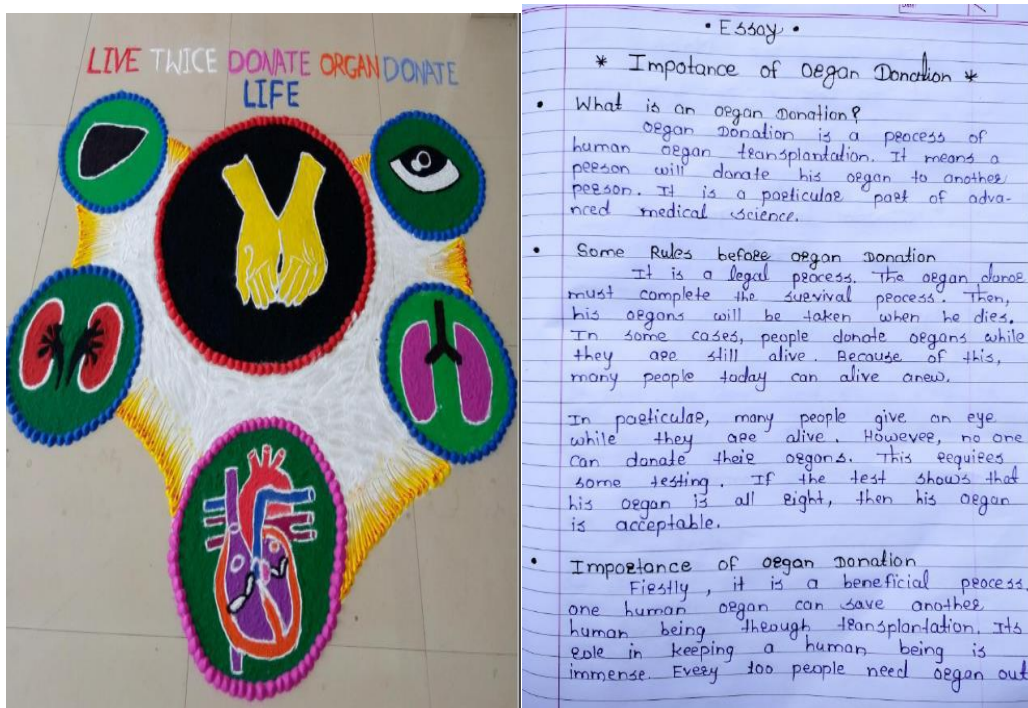 LIVE TWICE DONATE ORGAN DONATE
LIFE
• Essay •
* Impotance of organ Donation *
• What is an organ Donation?
organ Donation is a process of
human organ transplantation. It means a
person will donate his organ to another
person. It is a particular part of adva-
nced medical science.
• Some Rules before organ Donation
It is a legal process. The organ donor
must complete the survival process. Then,
his organs will be taken when he dies.
In some cases, people donate organs while
they are still alive. Because of this,
many people today can alive anew.
In particular, many people give an eye
while they are alive. However, no one
can donate their organs. This requires
some testing. If the test shows that
his organ is all right, then his organ
is acceptable.
• Importance of organ Donation
Firstly, it is a beneficial process.
one human organ can save another
human being through transplantation. Its
role in keeping a human being is
immense. Every 100 people need organ out